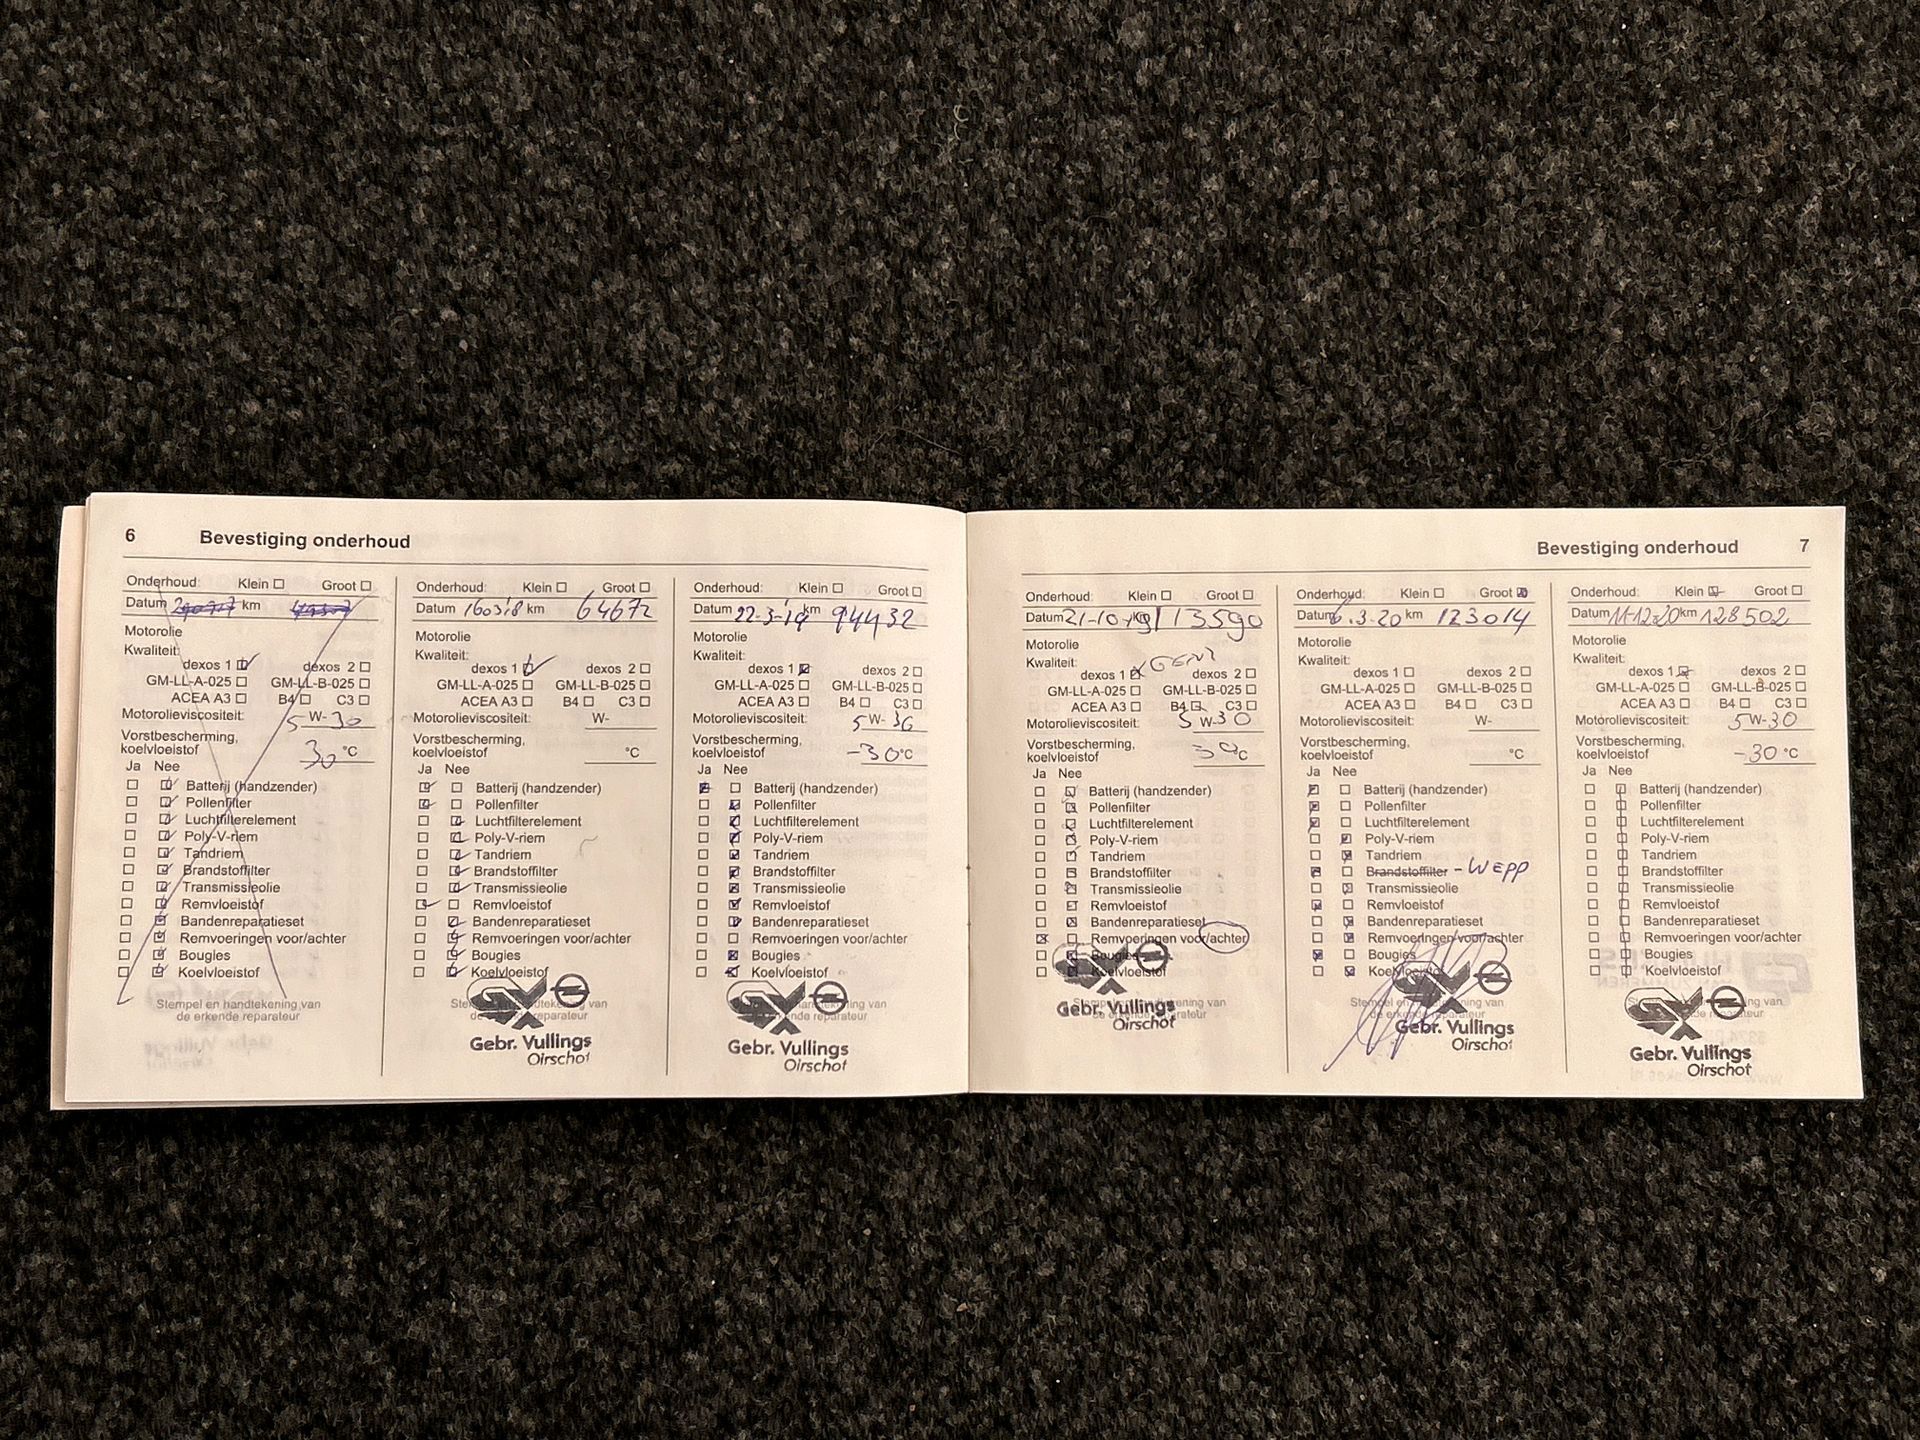 6 Bevestiging onderhoud
Onderhoud: Klein Groot
Datum km
Motorolie
Kwaliteit:
dexos 1 dexos 2
GM-LL-A-025 GM-LL-B-025
ACEA A3 B4 C3
Motorolieviscositeit 5 W- 30
Vorstbescherming,
koelvloeistof 30 °C
Ja Nee
Batterij (handzender)
Pollenfilter
Luchtfilterelement
Poly-V-riem
Tandriem
Brandstoffilter
Transmissieolie
Remvloeistof
Bandenreparatieset
Remvoeringen voor/achter
Bougies
Koelvloeistof
Stempel en handtekening van
de erkende reparateur
Onderhoud: Klein Groot
Datum 160318 km 64672
Motorolie
Kwaliteit:
dexos 1 dexos 2
GM-LL-A-025 GM-LL-B-025
ACEA A3 B4 C3
Motorolieviscositeit W-
Vorstbescherming,
koelvloeistof °C
Ja Nee
Batterij (handzender)
Pollenfilter
Luchtfilterelement
Poly-V-riem
Tandriem
Brandstoffilter
Transmissieolie
Remvloeistof
Bandenreparatieset
Remvoeringen voor/achter
Bougies
Koelvloeistof
Gebr. Vullings
Oirschot
Onderhoud: Klein Groot
Datum 22-3-19 km 94432
Motorolie
Kwaliteit:
dexos 1 dexos 2
GM-LL-A-025 GM-LL-B-025
ACEA A3 B4 C3
Motorolieviscositeit 5 W- 30
Vorstbescherming,
koelvloeistof -30 °C
Ja Nee
Batterij (handzender)
Pollenfilter
Luchtfilterelement
Poly-V-riem
Tandriem
Brandstoffilter
Transmissieolie
Remvloeistof
Bandenreparatieset
Remvoeringen voor/achter
Bougies
Koelvloeistof
Gebr. Vullings
Oirschot
Bevestiging onderhoud 7
Onderhoud: Klein Groot
Datum 21-10-19 km 113590
Motorolie
Kwaliteit:
dexos 1 dexos 2
GM-LL-A-025 GM-LL-B-025
ACEA A3 B4 C3
Motorolieviscositeit 5 W- 30
Vorstbescherming,
koelvloeistof 30 °C
Ja Nee
Batterij (handzender)
Pollenfilter
Luchtfilterelement
Poly-V-riem
Tandriem
Brandstoffilter
Transmissieolie
Remvloeistof
Bandenreparatieset
Remvoeringen voor/achter
Bougies
Koelvloeistof
Gebr. Vullings
Oirschot
Onderhoud: Klein Groot
Datum 6.3-20 km 123014
Motorolie
Kwaliteit:
dexos 1 dexos 2
GM-LL-A-025 GM-LL-B-025
ACEA A3 B4 C3
Motorolieviscositeit W-
Vorstbescherming,
koelvloeistof °C
Ja Nee
Batterij (handzender)
Pollenfilter
Luchtfilterelement
Poly-V-riem
Tandriem
Brandstoffilter - WEPP
Transmissieolie
Remvloeistof
Bandenreparatieset
Remvoeringen voor/achter
Bougies
Koelvloeistof
Gebr. Vullings
Oirschot
Onderhoud: Klein Groot
Datum 11-12-20 km 128502
Motorolie
Kwaliteit:
dexos 1 dexos 2
GM-LL-A-025 GM-LL-B-025
ACEA A3 B4 C3
Motorolieviscositeit 5 W- 30
Vorstbescherming,
koelvloeistof -30 °C
Ja Nee
Batterij (handzender)
Pollenfilter
Luchtfilterelement
Poly-V-riem
Tandriem
Brandstoffilter
Transmissieolie
Remvloeistof
Bandenreparatieset
Remvoeringen voor/achter
Bougies
Koelvloeistof
Gebr. Vullings
Oirschot